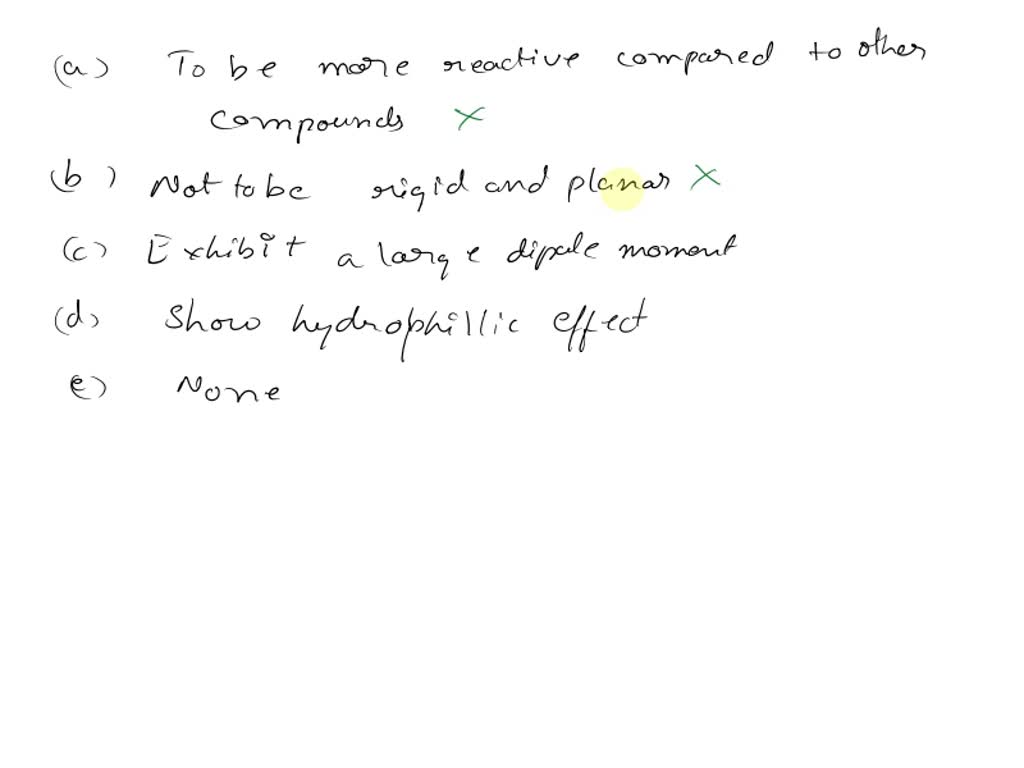 (a) To be more reactive compared to other
compounds ×
(b) Not to be rigid and planar ×
(c) Exhibit a large dipole moment
(d) Show hydrophillic effect
e) None